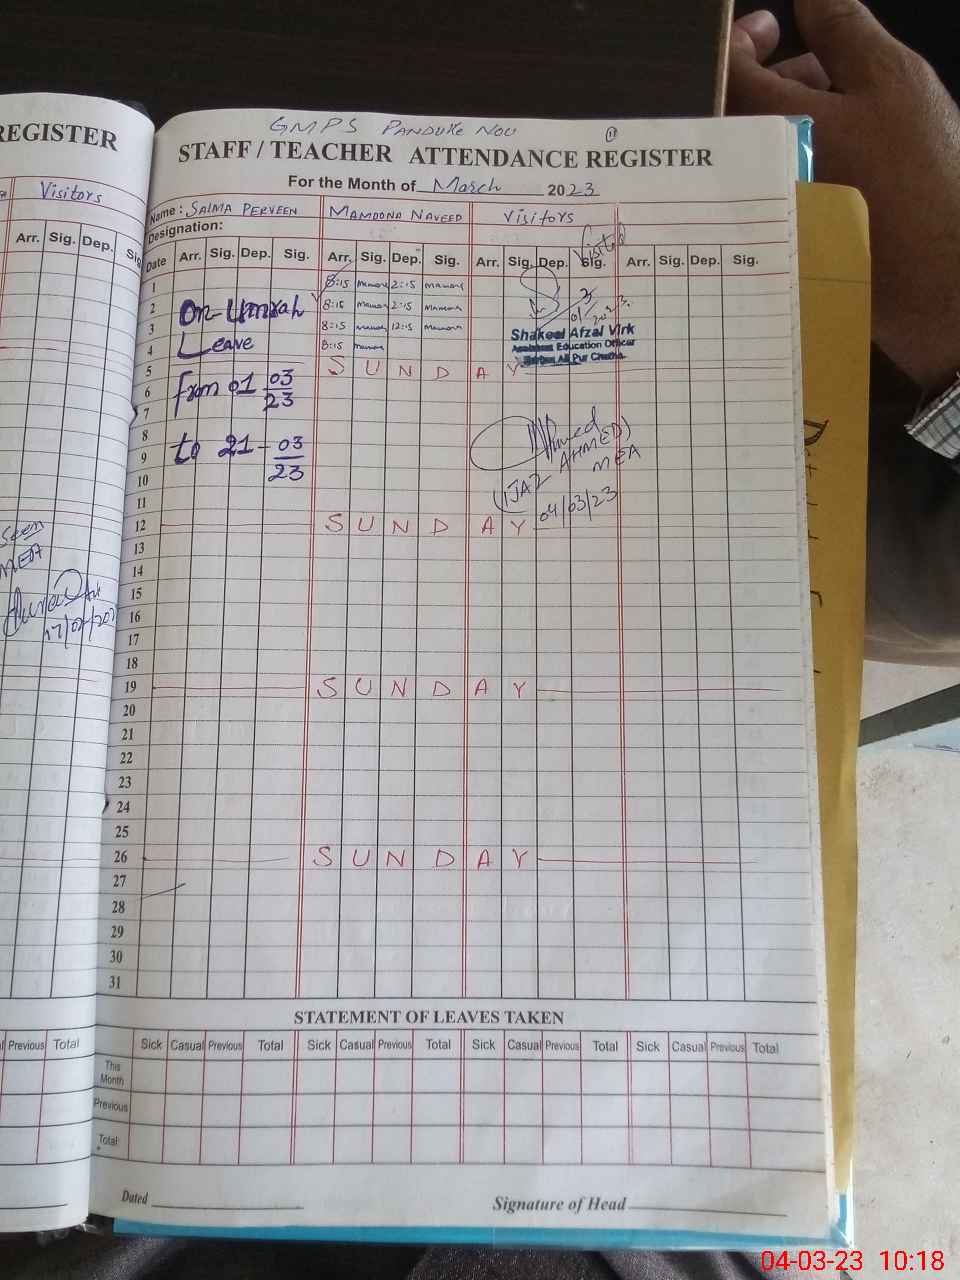 REGISTER
Visitors
Arr. Sig. Dep. Sig.
Seen
MEA
Previous Total
GMPS PANDUKE NOU
STAFF / TEACHER ATTENDANCE REGISTER
For the Month of March 2023
Name: SALMA PERVEEN MAMOONA NAVEED Visitors
Designation:
Visited
Date Arr. Sig. Dep. Sig. Arr. Sig. Dep. Sig. Arr. Sig. Dep. Sig. Arr. Sig. Dep. Sig.
1 8:15 2:15
2 On Umrah 8:15 2:15
3 8:15 12:15
Shakeel Afzal Virk
4 Leave 8:15
Education Officer
Ali Pur Chatha
5 SUNDAY
6 from 01 03/23
7
8
9 to 21-03/23
Ahmed
(IJAZ AHMED)
MEA
04/03/23
10
11
12 SUNDAY
13
14
15
16
17
18
19 SUNDAY
20
21
22
23
24
25
26 SUNDAY
27
28
29
30
31
STATEMENT OF LEAVES TAKEN
Sick Casual Previous Total Sick Casual Previous Total Sick Casual Previous Total Sick Casual Previous Total
This Month
Previous
Total
Dated
Signature of Head
04-03-23 10:18